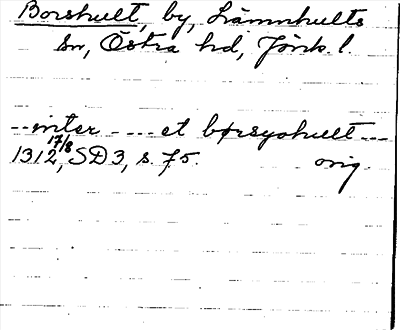 Borshult, by, Lämnhults
sn, Östra hd, Jönk. l.
-- inter - - -- et børsyohult --
1312 17/8, SD 3, s. 75. orig.